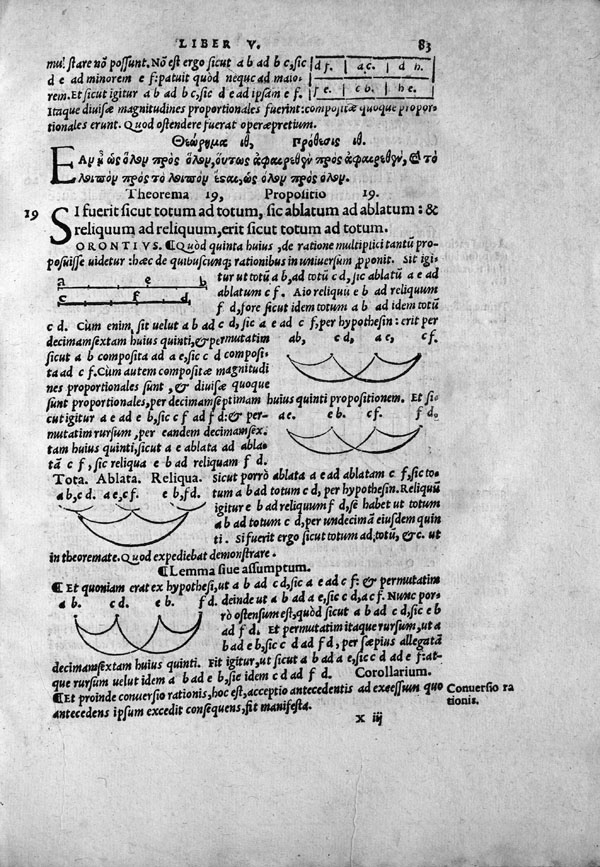 LIBER V. 83
mul stare nō possunt. Nō est ergo sicut a b ad b c, sic
d f. a c. d h.
d e ad minorem e f: patuit quòd neque ad maio-
rem. Et sicut igitur a b ad b c, sic d e ad ipsam e f.
f e. c b. h e.
Itaque diuisæ magnitudines proportionales fuerint: compositæ quoque propor-
tionales erunt. Quod ostendere fuerat operæpretium.
Θεώρημα ιθ, Πρόθεσις ιθ.
ΕΑν ᾖ ὡς ὅλον πρὸς ὅλον, οὕτως ἀφαιρεθὲν πρὸς ἀφαιρεθέν, καὶ τὸ
λοιπὸν πρὸς τὸ λοιπὸν ἔσαι, ὡς ὅλον πρὸς ὅλον.
Theorema 19, Propositio 19.
19 SI fuerit sicut totum ad totum, sic ablatum ad ablatum: &
reliquum ad reliquum, erit sicut totum ad totum.
ORONTIVS. ¶Quòd quinta huius, de ratione multiplici tantū pro-
posuisse uidetur: hæc de quibuscunq; rationibus in uniuersum proponit. Sit igi-
a e b
tur ut totū a b, ad totū c d, sic ablatū a e ad
c f d
ablatum c f. Aio reliquū e b ad reliquum
f d, fore sicut idem totum a b ad idem totū
c d. Cùm enim sit uelut a b ad c d, sic a e ad c f, per hypothesin: erit per
decimamsextam huius quinti, & permutatim
ab, cd, ae, cf.
sicut a b composita ad a e, sic c d composi-
ta ad c f. Cùm autem compositæ magnitudi
nes proportionales sunt, & diuisæ quoque
sunt proportionales, per decimamseptimam huius quinti propositionem. Et si-
cut igitur a e ad e b, sic c f ad f d: & per-
ae. eb. cf. fd.
mutatim rursum, per eandem decimamsex-
tam huius quinti, sicut a e ablata ad abla-
tā c f, sic reliqua e b ad reliquam f d.
Tota. Ablata. Reliqua.
ab, cd. ae, cf. eb, fd.
Sicut porrò ablata a e ad ablatam c f, sic to-
tum a b ad totum c d, per hypothesin. Reliquū
igitur e b ad reliquum f d, se habet ut totum
a b ad totum c d, per undecimā eiusdem quin
ti. Si fuerit ergo sicut totum ad totū, &c. ut
in theoremate. Quod expediebat demonstrare.
¶Lemma siue assumptum.
¶Et quoniam erat ex hypothesi, ut a b ad c d, sic a e ad c f: & permutatim
ab. cd. eb. fd.
deinde ut a b ad a e, sic c d, ad c f. Nunc por-
rò ostensum est, quòd sicut a b ad c d, sic e b
ad f d. Et permutatim itaque rursum, ut a
b ad e b, sic c d ad f d, per sæpius allegatā
decimamsextam huius quinti. Fit igitur, ut sicut a b ad a e, sic c d ad c f: at-
que rursum uelut idem a b ad e b, sic idem c d ad f d. Corollarium.
¶Et proinde conuersio rationis, hoc est, acceptio antecedentis ad excessum quo
Conuersio ra
tionis.
antecedens ipsum excedit consequens, fit manifesta.
X iij